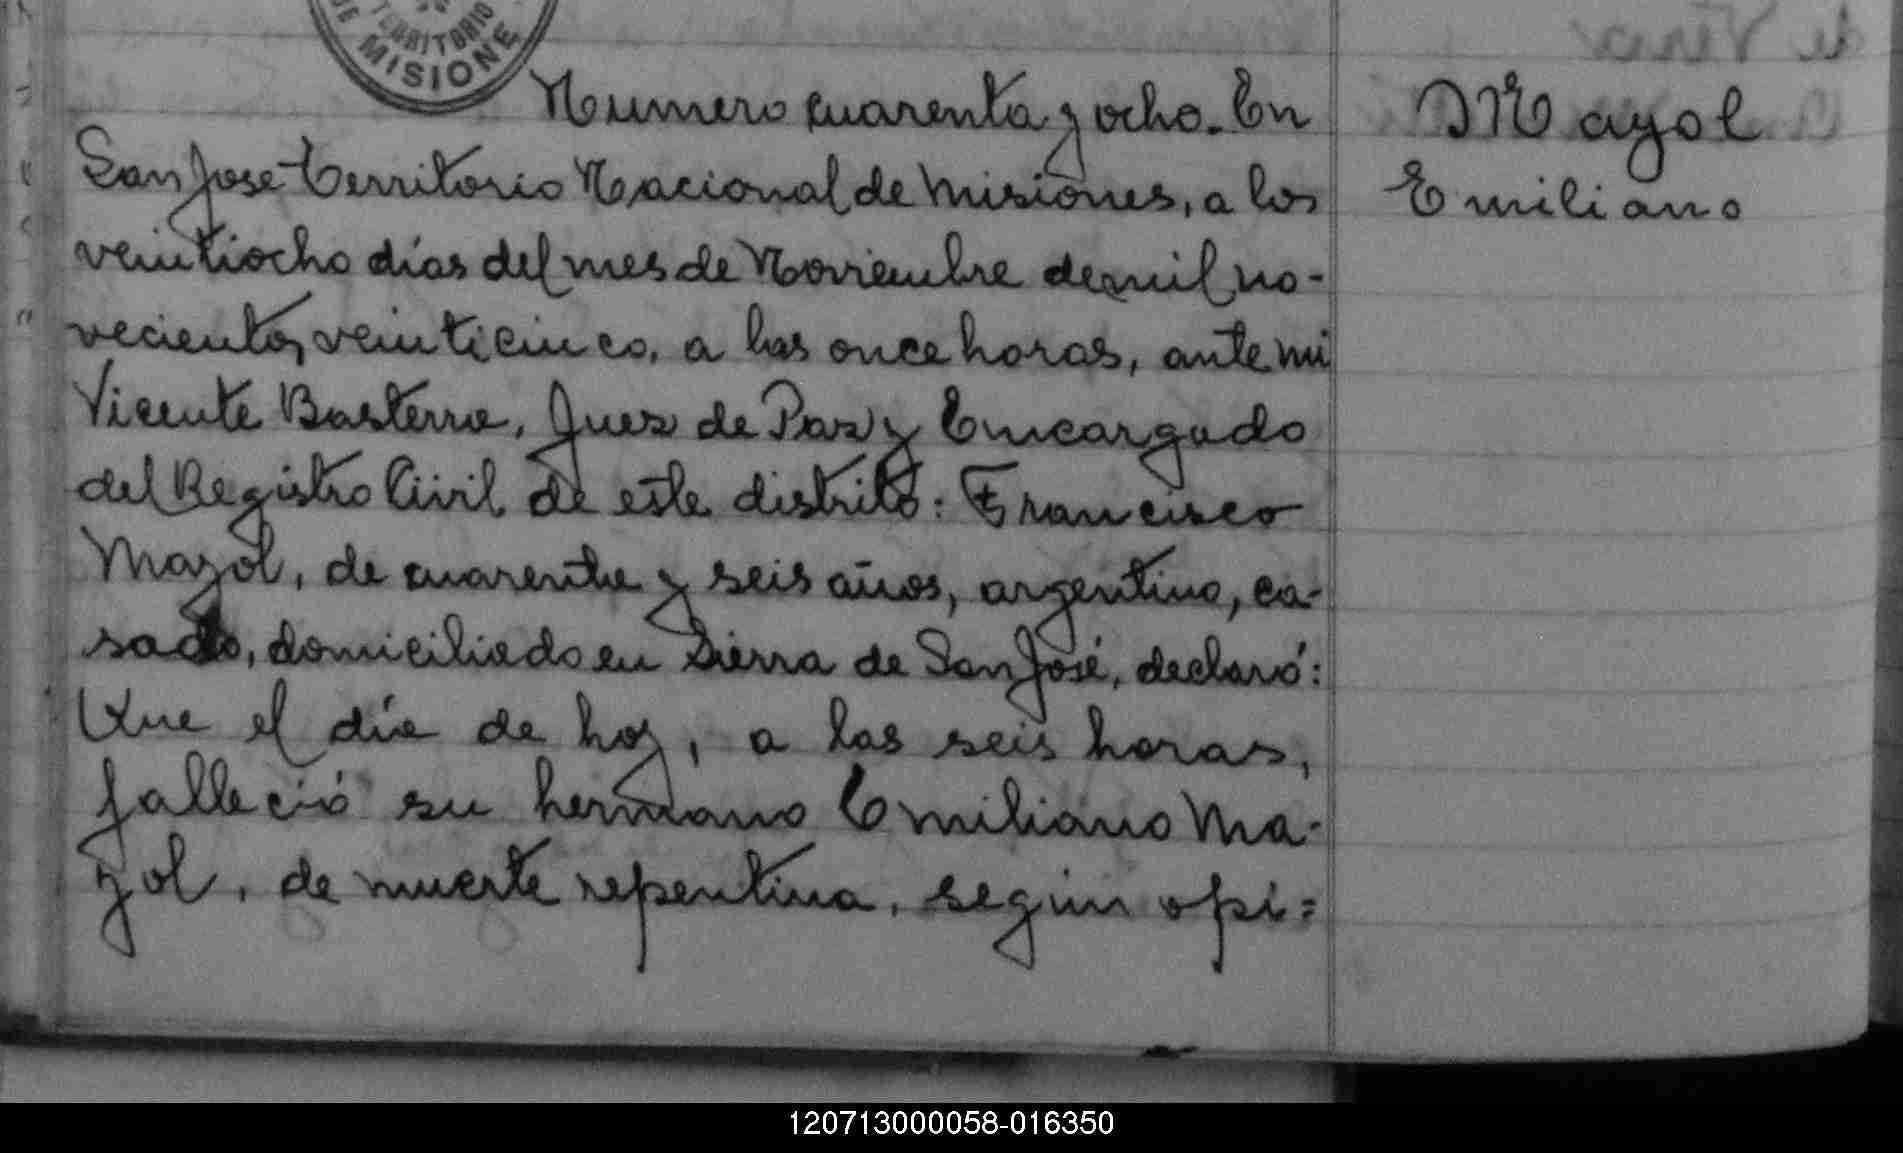 TERRITORIO
DE MISIONE
Numero cuarenta y ocho. En
San Jose Territorio Nacional de Misiones, a los
veintiocho días del mes de Noviembre de mil no-
vecientos veinticinco, a las once horas, ante mi
Vicente Basterra, Juez de Paz y Encargado
del Registro Civil de este distrito: Francisco
Mayol, de cuarenta y seis años, argentino, ca-
sado, domiciliado en Sierra de San José, declaró:
Que el día de hoy, a las seis horas,
falleció su hermano Emiliano Ma-
yol, de muerte repentina, según opi=
Mayol
Emiliano
120713000058-016350